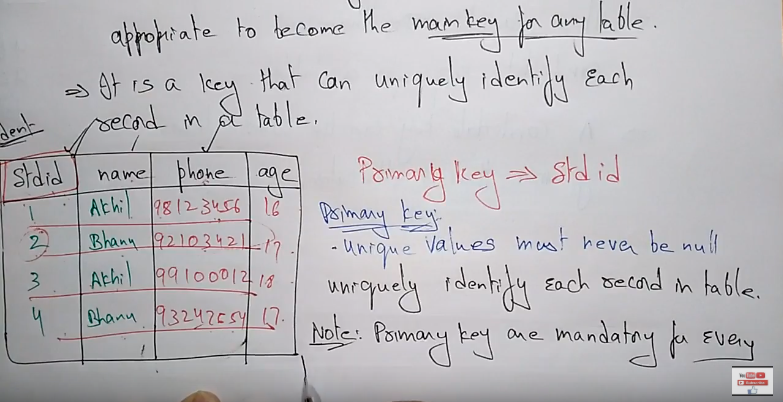 appropriate to become the main key for any table.
⇒ It is a key that can uniquely identify each
record in a table.
dent
Stdid name phone age
1 Akhil 98123456 16
2 Bhanu 92103421 17
3 Akhil 99100012 18
4 Bhanu 93247654 17
Primary key ⇒ Stdid
Primary key:
- unique values must never be null
uniquely identify each record in table.
Note: Primary key are mandatory for every